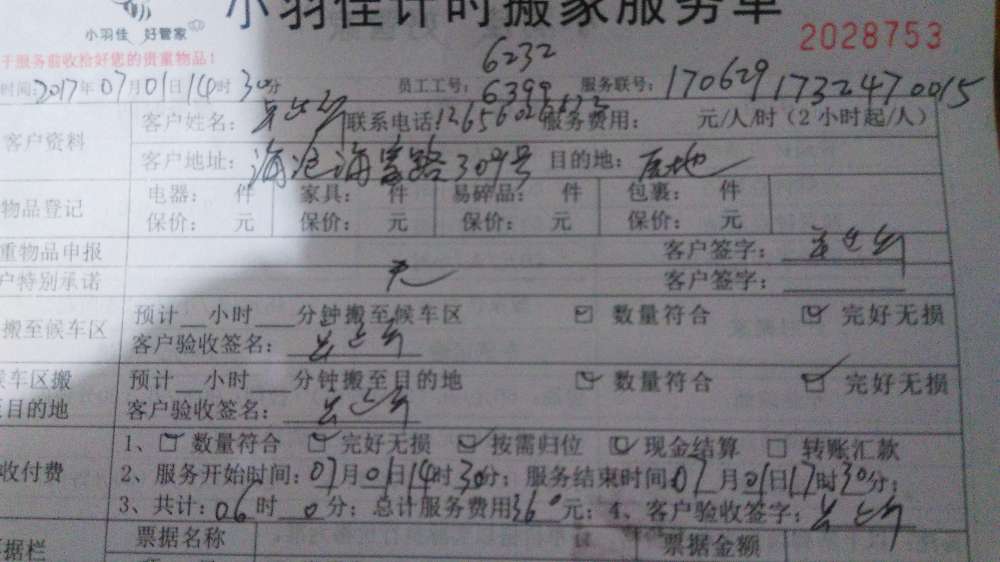 小羽佳计时搬家服务单
小羽佳 好管家
2028753
于服务前收拾好您的贵重物品!
6232
时间:2017年07月01日14时30分 员工工号: 6399 服务联号: 170629173247 0015
客户资料 客户姓名: 联系电话: 服务费用: 元/人/时(2小时起/人)
客户地址: 海沧海富路309号 目的地: 原地
物品登记 电器: 件 家具: 件 易碎品: 件 包裹: 件
保价: 元 保价: 元 保价: 元 保价: 元
重物品申报 客户签字:
户特别承诺 无 客户签字:
搬至候车区 预计__小时___分钟搬至候车区 ☑ 数量符合 ☑ 完好无损
客户验收签名:
候车区搬至目的地 预计__小时___分钟搬至目的地 ☑ 数量符合 ☑ 完好无损
客户验收签名:
收付费 1、☑ 数量符合 ☑ 完好无损 ☑ 按需归位 ☑ 现金结算 □ 转账汇款
2、服务开始时间:07月01日14时30分;服务结束时间:07月01日17时30分;
3、共计:06时0分;总计服务费用360元;4、客户验收签字:
据栏 票据名称 票据金额